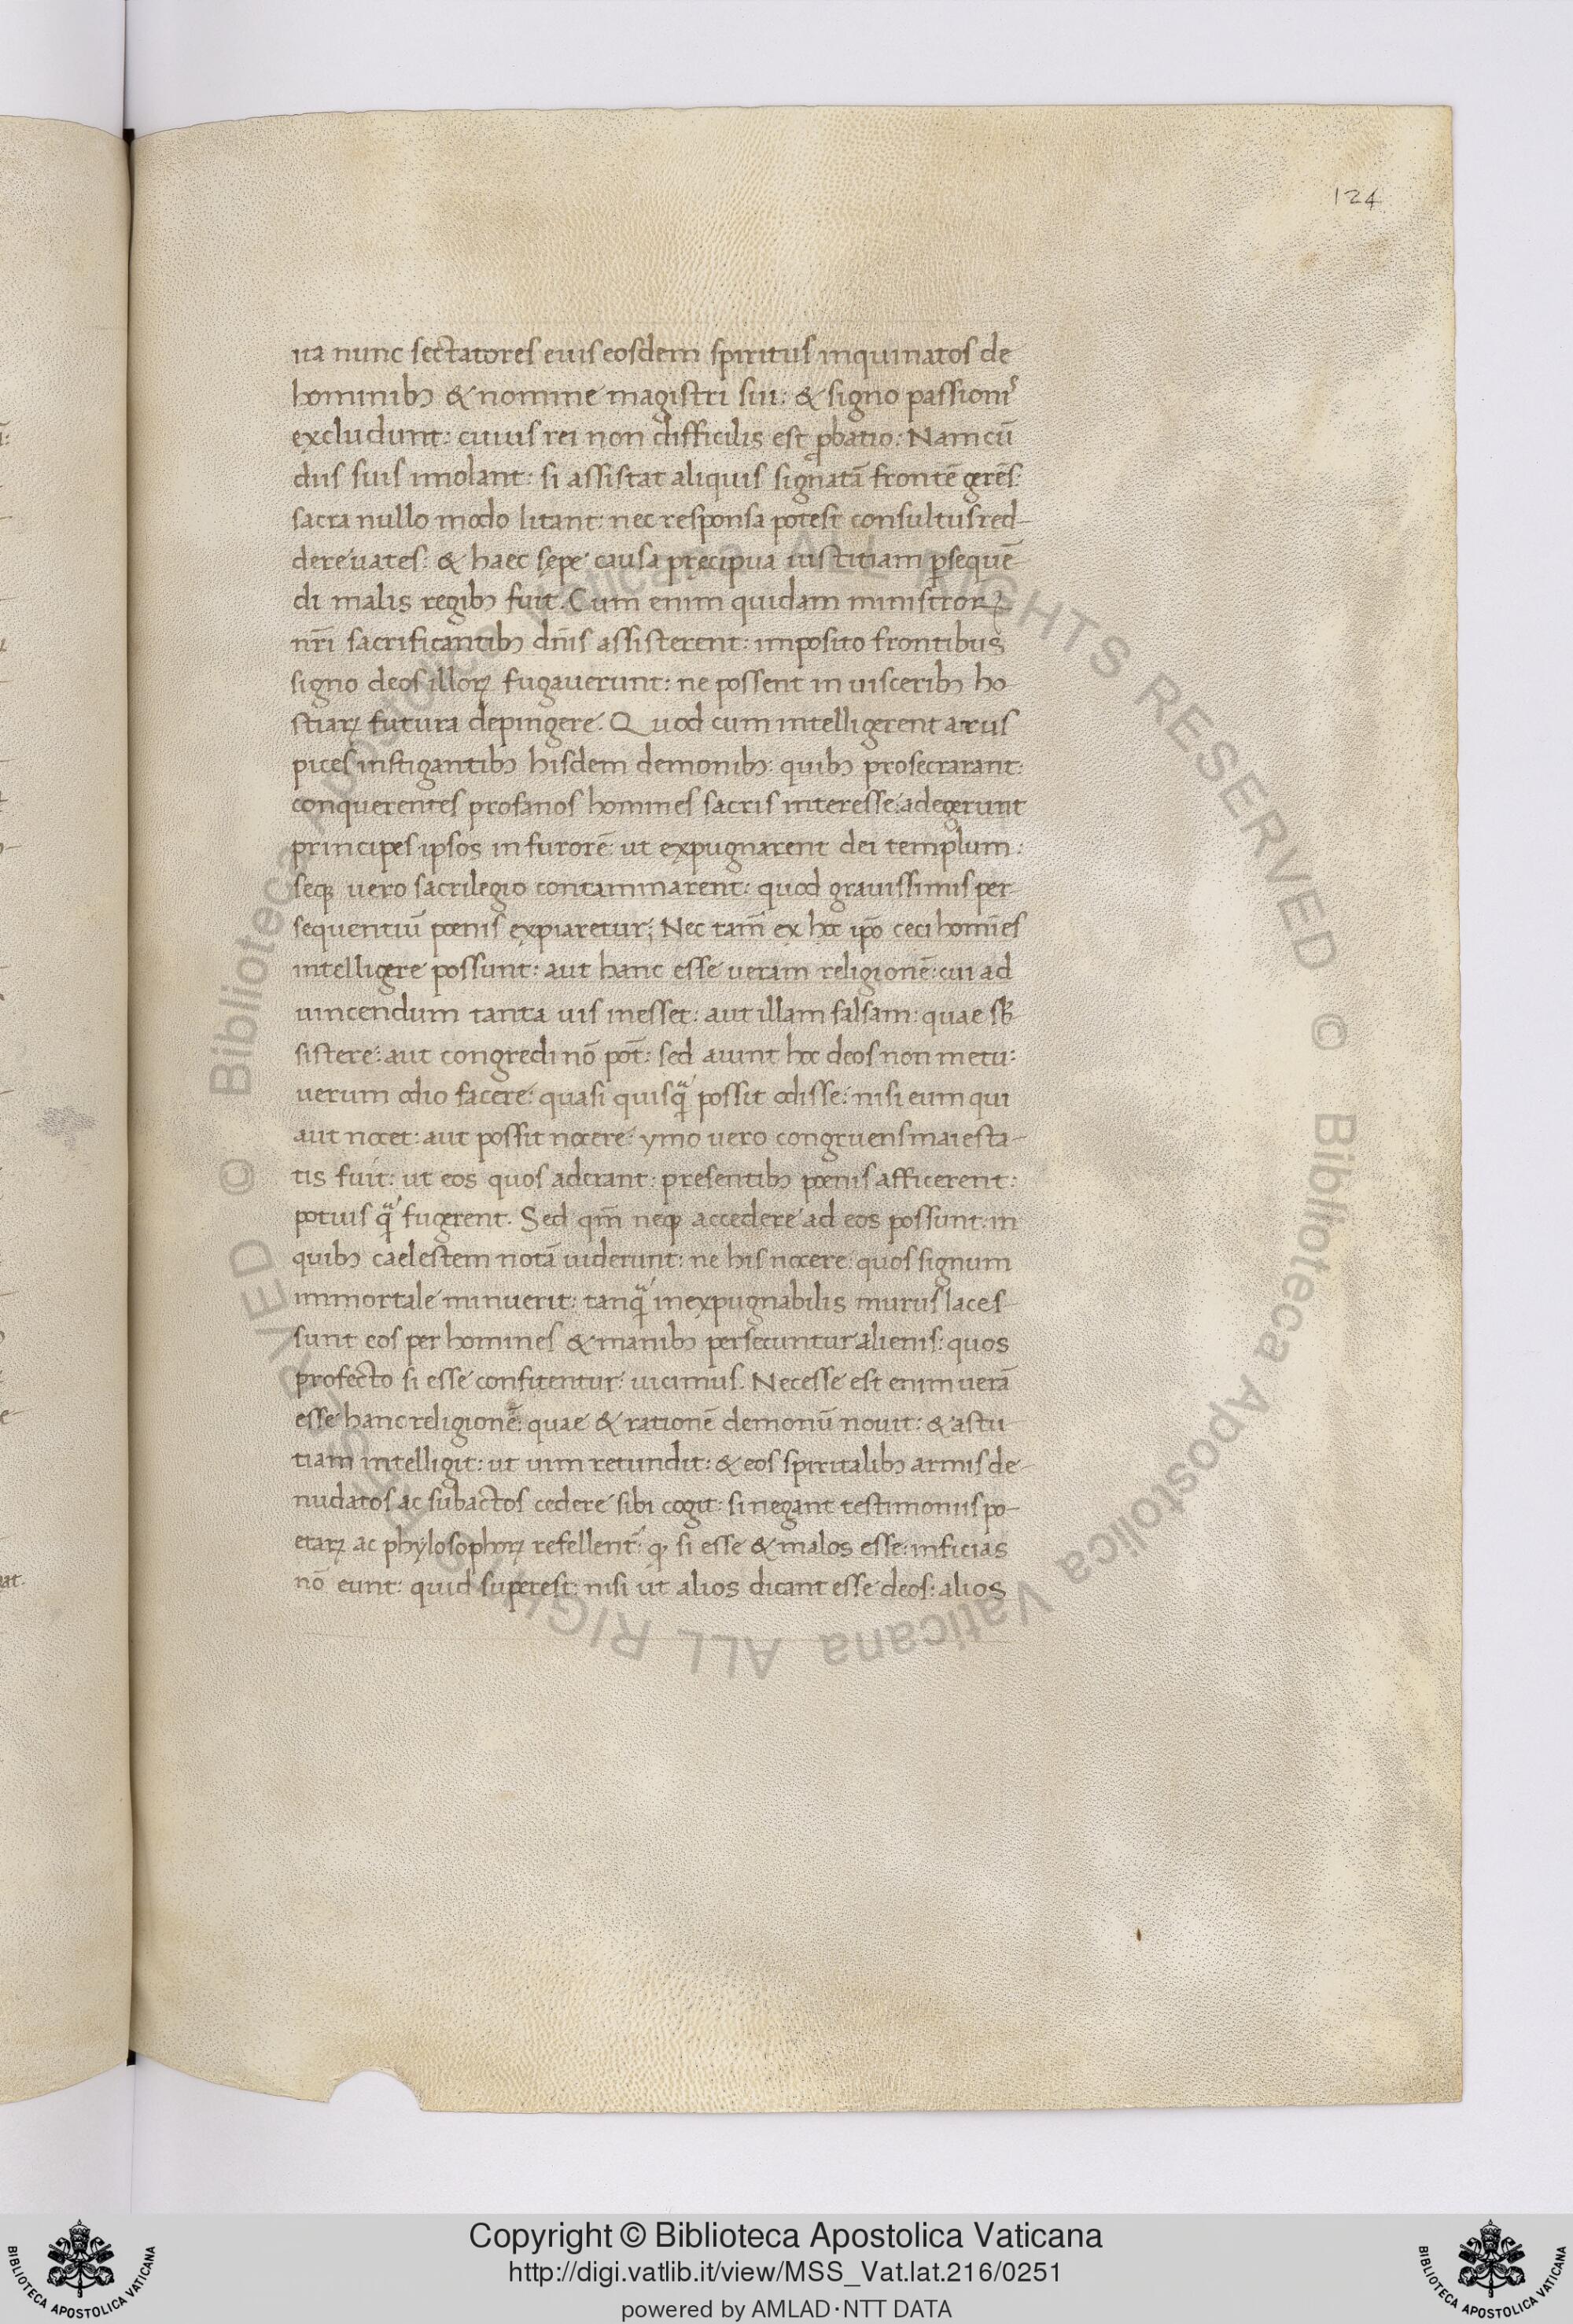 124
ita nunc sectatores eius eosdem spiritus inquinatos de
hominibꝫ & nomine magistri sui: & signo passionis
excludunt: cuius rei non difficilis est ꝓbatio: Nam cū
diis suis imolant: si assistat aliquis signatā frontē gerēs:
sacra nullo modo litant: nec responsa potest consultus red-
dere uates: & haec sępe causa pręcipua iustitiam ꝑsequē
di malis regibꝫ fuit. Cum enim quidam ministroꝝ
nr̄i sacrificantibꝫ dn̄is assisterent: imposito frontibus
signo deos illoꝝ fugauerunt: ne possent in uisceribꝫ ho-
stiaꝝ futura depingere. Quod cum intelligerent arus
pices instigantibꝫ hisdem demonibꝫ: quibꝫ prosecrarant:
conquerentes profanos homines sacris interesse: adegerunt
principes ipsos in furorē: ut expugnarent dei templum:
seqꝫ uero sacrilegio contaminarent: quod grauissimis per
sequentiū poenis expiaretur; Nec tam̄ ex hoc ip̄o ceci homīes
intelligere possunt: aut hanc esse ueram religionē: cui ad
uincendum tanta uis inesset: aut illam falsam: quae sb̄
sistere: aut congredi nō pōt: sed aiunt hoc deos non metu:
uerum odio facere: quasi quisꝗᷓ possit odisse: nisi eum qui
aut nocet: aut possit nocere: ymo uero congruens maiesta-
tis fuit: ut eos quos adcrant: presentibꝫ poenis afficerent:
potuis ꝗᷓ fugerent. Sed qm̄ neqꝫ accedere ad eos possunt: in
quibꝫ caelestem notā uiderunt: ne his nocere: quos signum
immortale minuerit: tanꝗᷓ inexpugnabilis murus laces-
sunt eos per homines & manibꝫ persecuntur alienis: quos
profecto si esse confitentur: uicimus. Necesse est enim uerā
esse hanc religionē: quae & rationē demonū nouit: & astu
tiam intelligit: ut uim retundit: & eos spiritalibꝫ armis de-
nudatos ac subactos cedere sibi cogit: si negant testimoniis po-
etaꝝ ac phylosophoꝝ refellent̄: qꝫ si esse & malos esse: inficias
nō eunt: quid superest: nisi ut alios dicant esse deos: alios
Copyright © Biblioteca Apostolica Vaticana
http://digi.vatlib.it/view/MSS_Vat.lat.216/0251
powered by AMLAD·NTT DATA